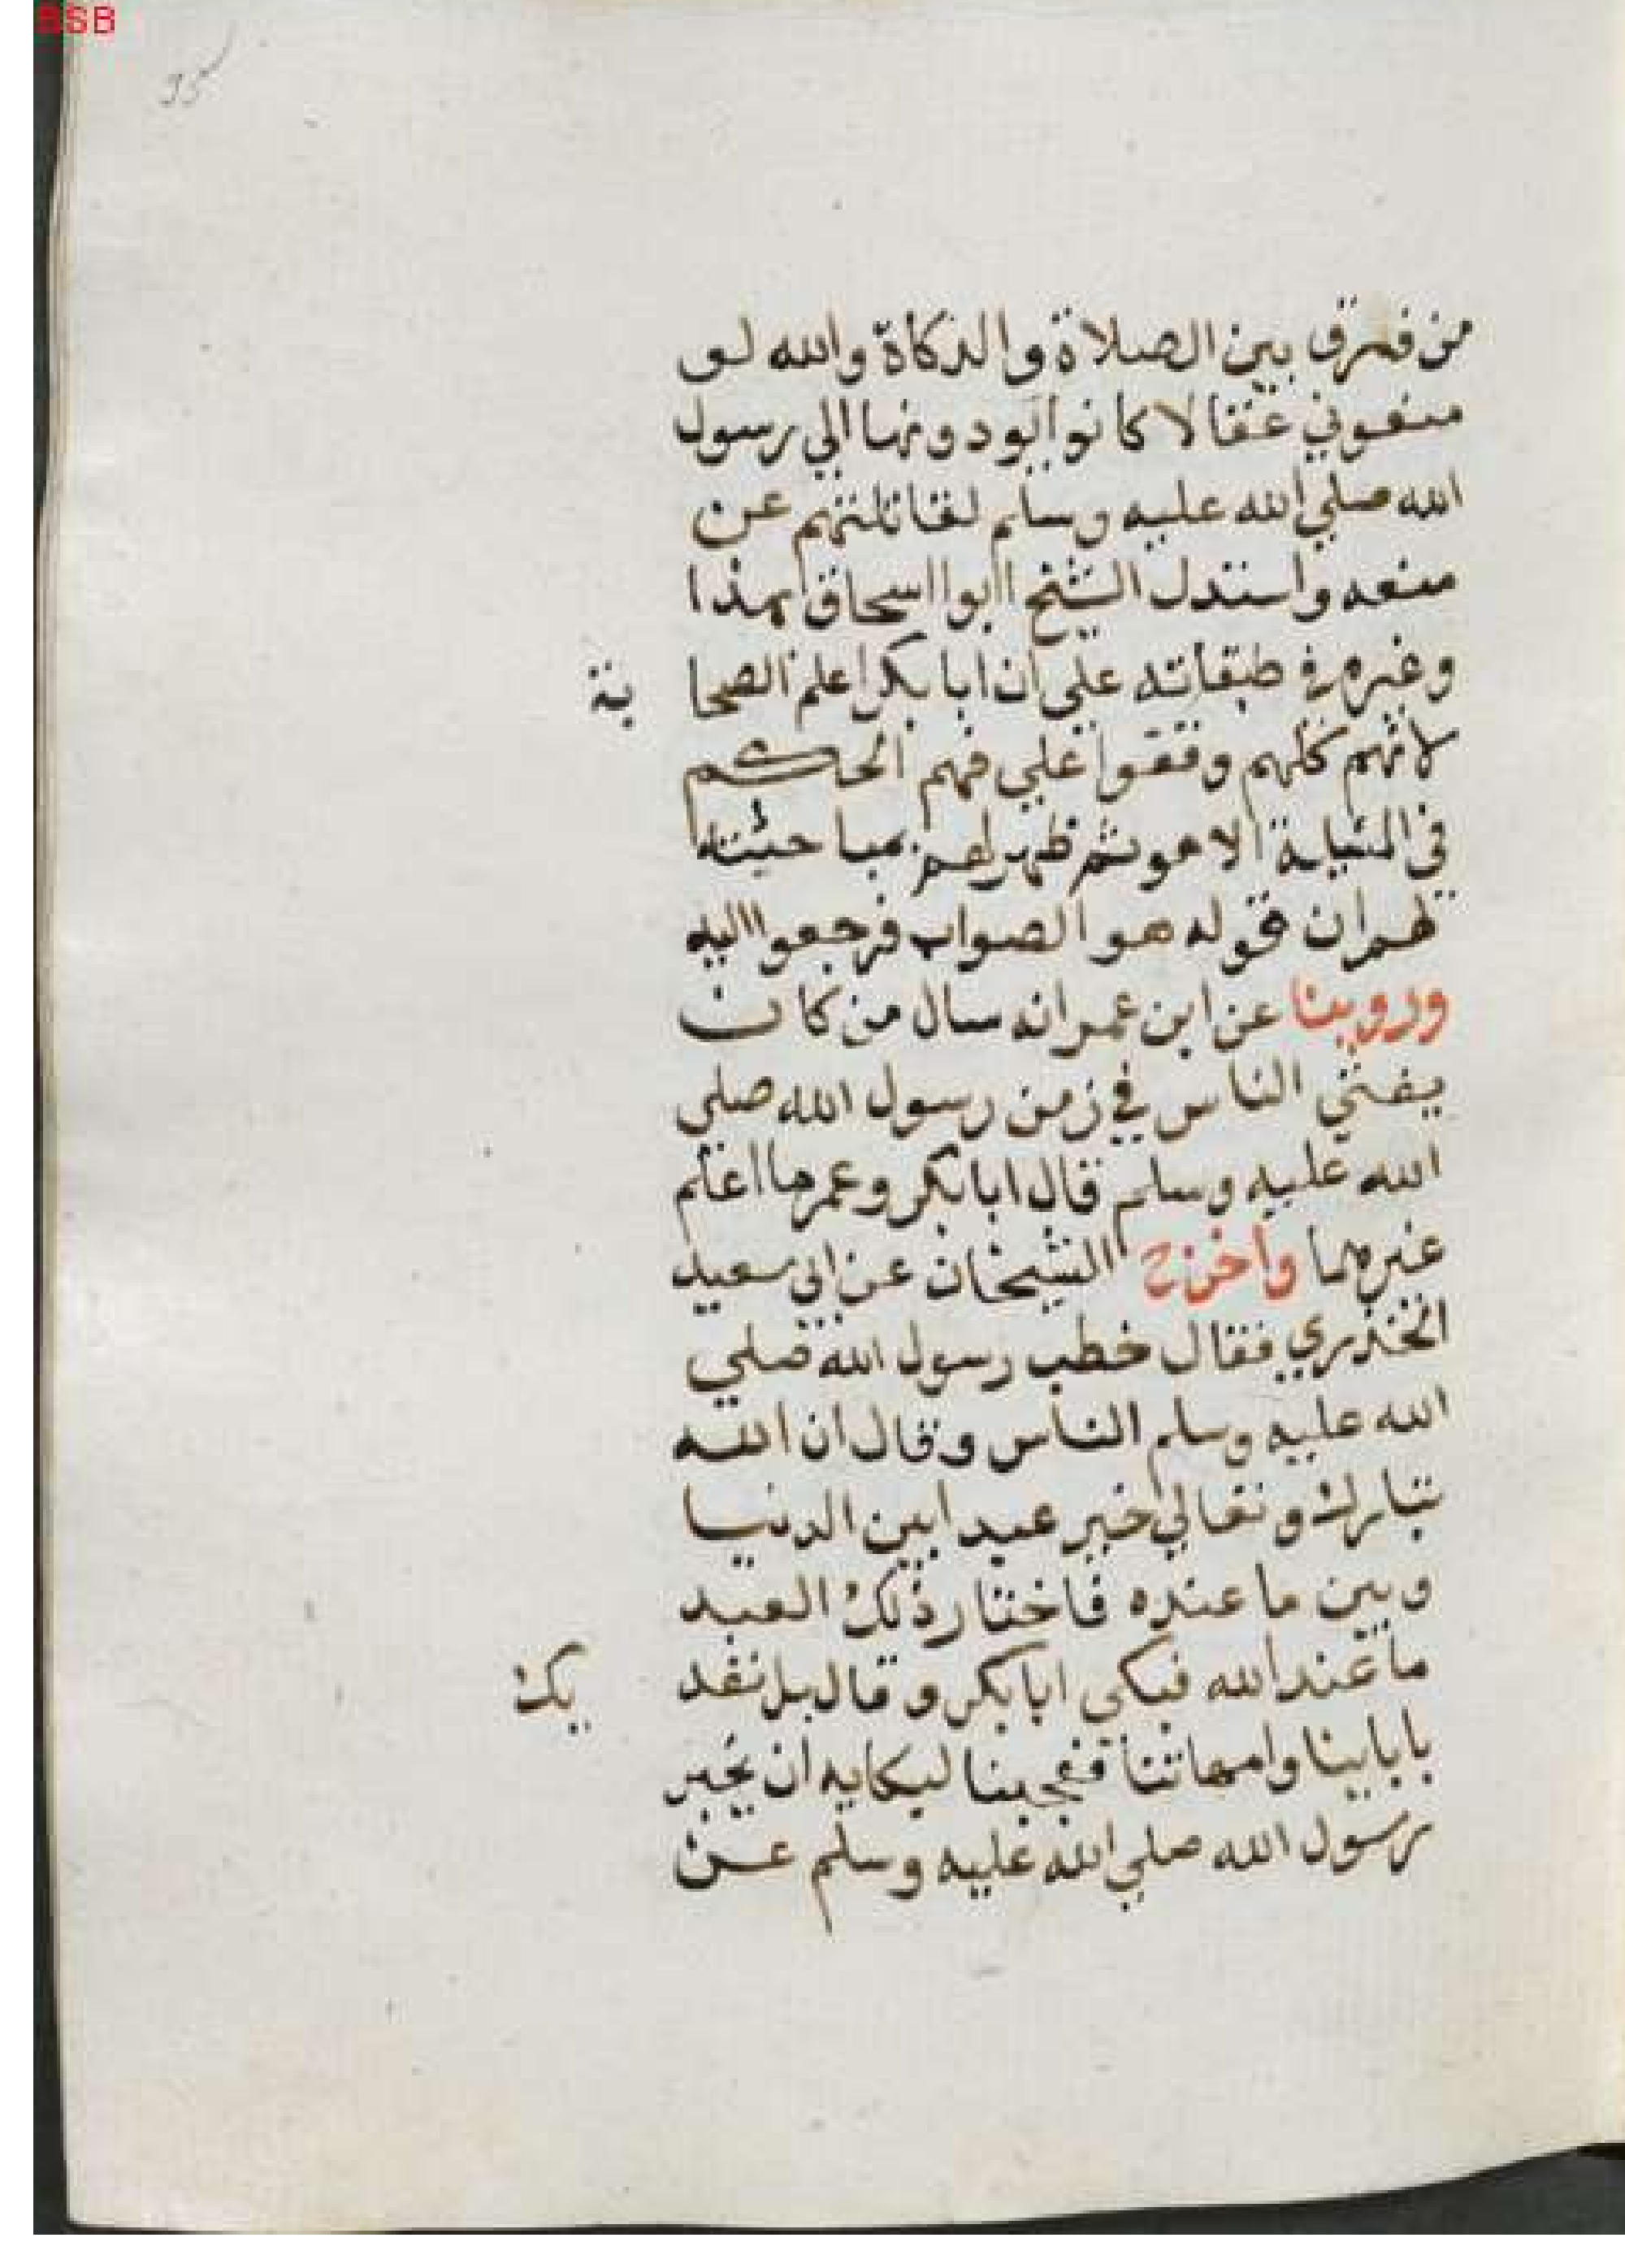 BSB
95
من فرق بين الصلاة والزكاة والله لو
منعوني عقالا كانوا يودونها الي رسول
الله صلي الله عليه وسلم لقاتلتهم عن
منعه واستدل الشيخ ابوا اسحاق بهذا
وغيره في طبقاته علي ان ابا بكر اعلم الصحابة
لانهم كلهم وقفوا علي فهم الحكم
في المسالة الا هو ثم ظهر لهم بمباحثته
لهم ان قوله هو الصواب فرجعوا اليه
وروينا عن ابن عمر انه سال من كان
يفتي الناس في زمن رسول الله صلي
الله عليه وسلم قال ابا بكر وعمر ما اعلم
غيرهما واخرج الشيخان عن ابي سعيد
الخذري فقال خطب رسول الله صلي
الله عليه وسلم الناس وقال ان الله
تبارك وتعالي خير عبدا بين الدنيا
وبين ما عنده فاختار ذلك العبد
ما عند الله فبكي ابا بكر وقال بل نفديك
بابابينا وامهاتنا فعجبنا لبكايه ان يخبر
رسول الله صلي الله عليه وسلم عن